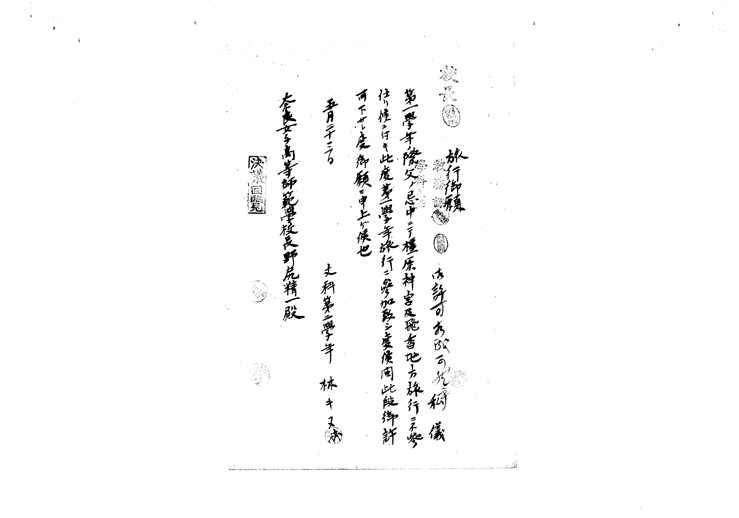 校長
旅行御願
教務課
御許可相成可然哉 儀
第一學年際父ノ忌中ニテ橿原神宮及飛鳥地方旅行ニ不參
仕リ候ニ付キ此度第一學年旅行ニ參加致シ度候間此段御許
可下サレ度御願ヒ申上ゲ候也
五月二十二日
文科第二學年 林キヌ
奈良女子高等師範學校長野尻精一殿
決議回覽